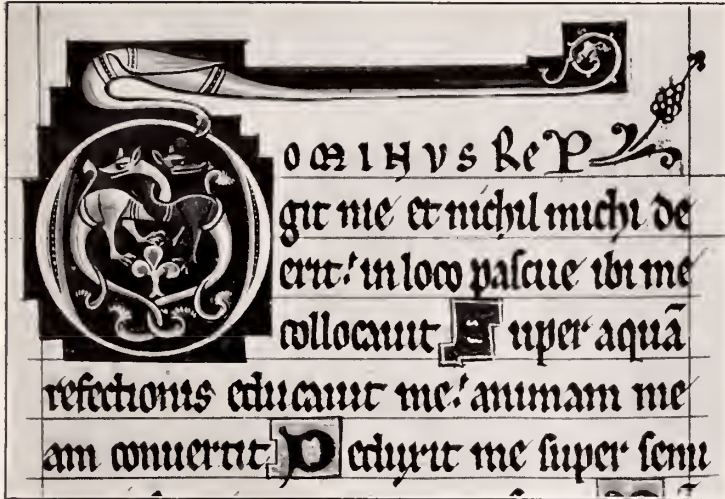 DOMINUS Re
git me et nichil michi de
erit: in loco pascue ibi me
collocauit Super aquā
refectionis educauit me: animam me
am conuertit Deduxit me super semi